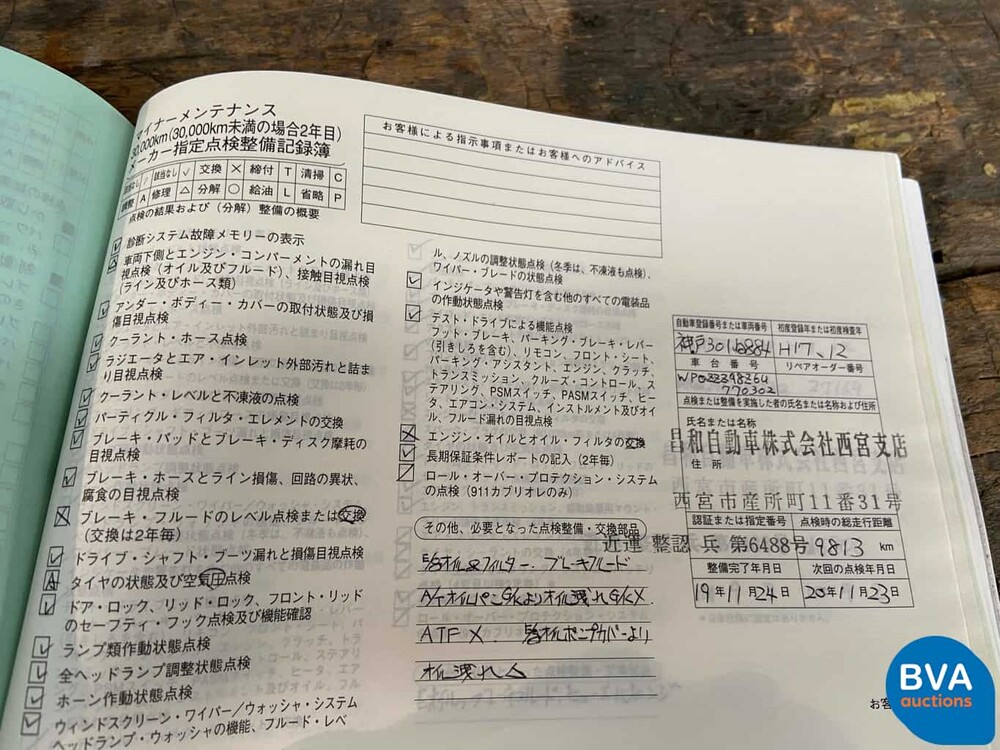 マイナーメンテナンス
30,000km(30,000km未満の場合2年目)
メーカー指定点検整備記録簿
該当なし / ✓ 交換 × 締付 T 清掃 C
調整 A 修理 △ 分解 ○ 給油 L 省略 P
点検の結果および(分解)整備の概要
診断システム故障メモリーの表示
車両下側とエンジン・コンパーメントの漏れ目
視点検(オイル及びフルード)、接触目視点検
(ライン及びホース類)
アンダー・ボディー・カバーの取付状態及び損
傷目視点検
クーラント・ホース点検
ラジエータとエア・インレット外部汚れと詰ま
り目視点検
クーラント・レベルと不凍液の点検
パーティクル・フィルタ・エレメントの交換
ブレーキ・パッドとブレーキ・ディスク摩耗の
目視点検
ブレーキ・ホースとライン損傷、回路の異状、
腐食の目視点検
ブレーキ・フルードのレベル点検または交換
(交換は2年毎)
ドライブ・シャフト・ブーツ漏れと損傷目視点検
タイヤの状態及び空気圧点検
ドア・ロック、リッド・ロック、フロント・リッド
のセーフティ・フック点検及び機能確認
ランプ類作動状態点検
全ヘッドランプ調整状態点検
ホーン作動状態点検
ウィンドスクリーン・ワイパー/ウォッシャ・システム
ヘッドランプ・ウォッシャの機能、フルード・レベ
お客様による指示事項またはお客様へのアドバイス
ル、ノズルの調整状態点検(冬季は、不凍液も点検)、
ワイパー・ブレードの状態点検
インジケータや警告灯を含む他のすべての電装品
の作動状態点検
テスト・ドライブによる機能点検
フット・ブレーキ、パーキング・ブレーキ・レバー
(引きしろを含む)、リモコン、フロント・シート、
パーキング・アシスタント、エンジン、クラッチ、
トランスミッション、クルーズ・コントロール、ス
テアリング、PSMスイッチ、PASMスイッチ、ヒー
タ、エアコン・システム、インストルメント及びオイ
ル、フルード漏れの目視点検
エンジン・オイルとオイル・フィルタの交換
長期保証条件レポートの記入(2年毎)
ロール・オーバー・プロテクション・システム
の点検(911カブリオレのみ)
その他、必要となった点検整備・交換部品
オイル&フィルター. ブレーキフルード
A/TオイルパンG/Kよりオイル洩れG/K×.
ATF × オイルポンプカバーより
オイル洩れ△
自動車登録番号または車両番号 初度登録年または初度検査年
神戸301 6884 H17、12
車台番号 リペアオーダー番号
770302
点検または整備を実施した者の氏名または名称および住所
氏名または名称
昌和自動車株式会社西宮支店
住所
西宮市産所町11番31号
認証または指定番号 点検時の総走行距離
近運 整認 兵 第6488号 9813 km
整備完了年月日 次回の点検年月日
19年11月24日 20年11月23日
お客
BVA
auctions